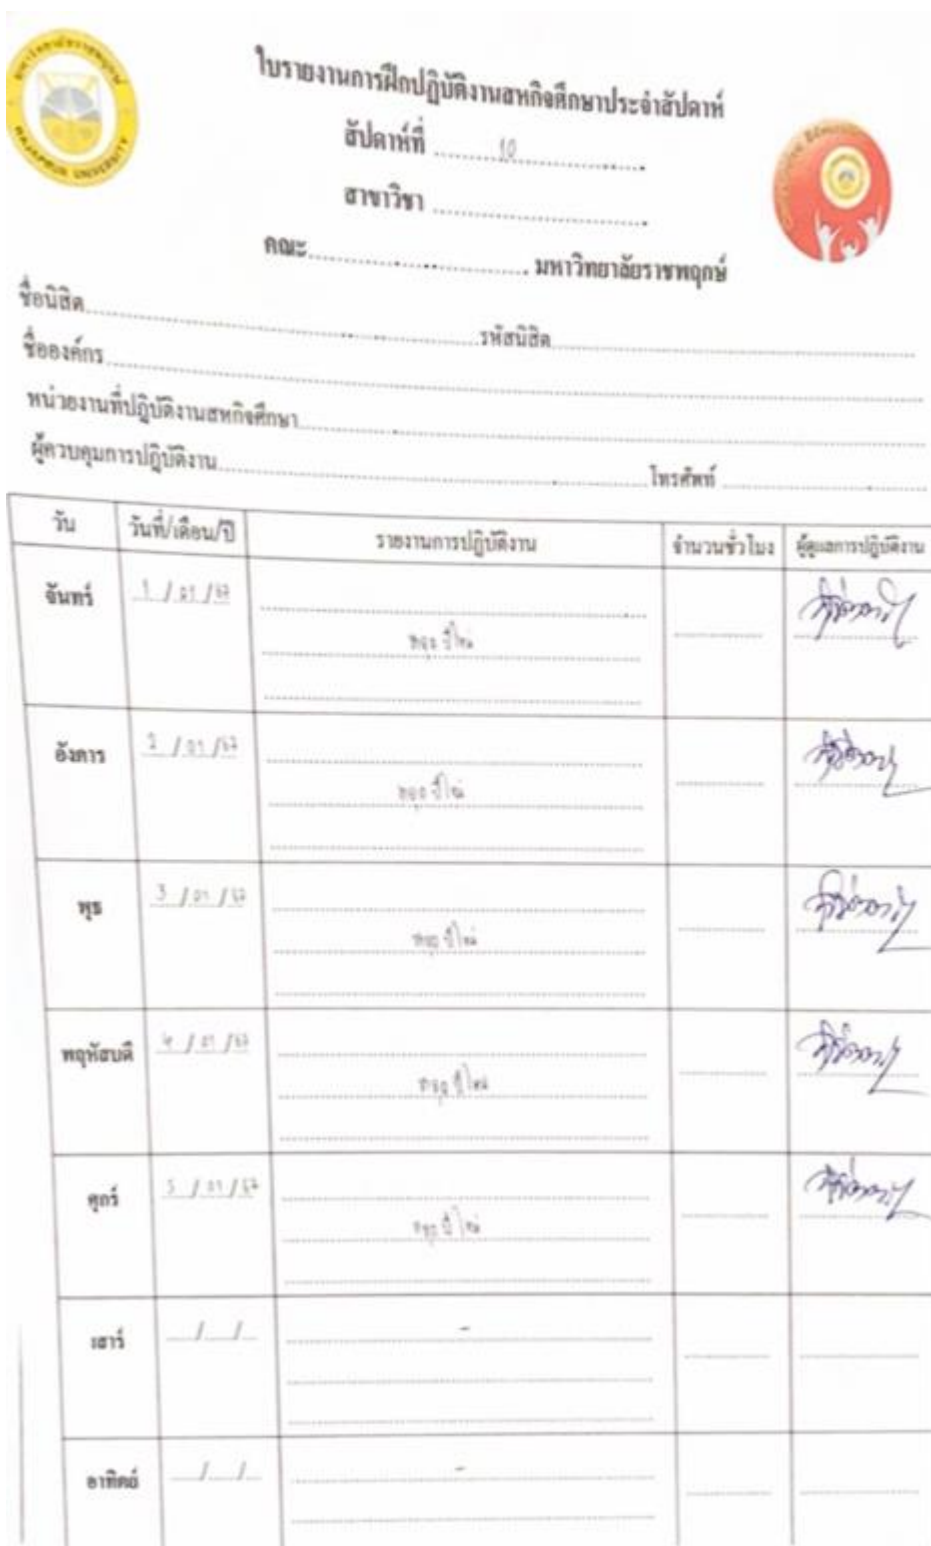 ใบรายงานการฝึกปฏิบัติงานสหกิจศึกษาประจำสัปดาห์
สัปดาห์ที่ 10
สาขาวิชา
คณะ มหาวิทยาลัยราชพฤกษ์
RAJAPRUK UNIVERSITY
ชื่อนิสิต รหัสนิสิต
ชื่อองค์กร
หน่วยงานที่ปฏิบัติงานสหกิจศึกษา
ผู้ควบคุมการปฏิบัติงาน โทรศัพท์
วัน วันที่/เดือน/ปี รายงานการปฏิบัติงาน จำนวนชั่วโมง ผู้ดูแลการปฏิบัติงาน
จันทร์ 1 / 01 / 67
หยุด ปีใหม่
อังคาร 2 / 01 / 67
หยุด ปีใหม่
พุธ 3 / 01 / 67
หยุด ปีใหม่
พฤหัสบดี 4 / 01 / 67
หยุด ปีใหม่
ศุกร์ 5 / 01 / 67
หยุด ปีใหม่
เสาร์ / / -
อาทิตย์ / / -